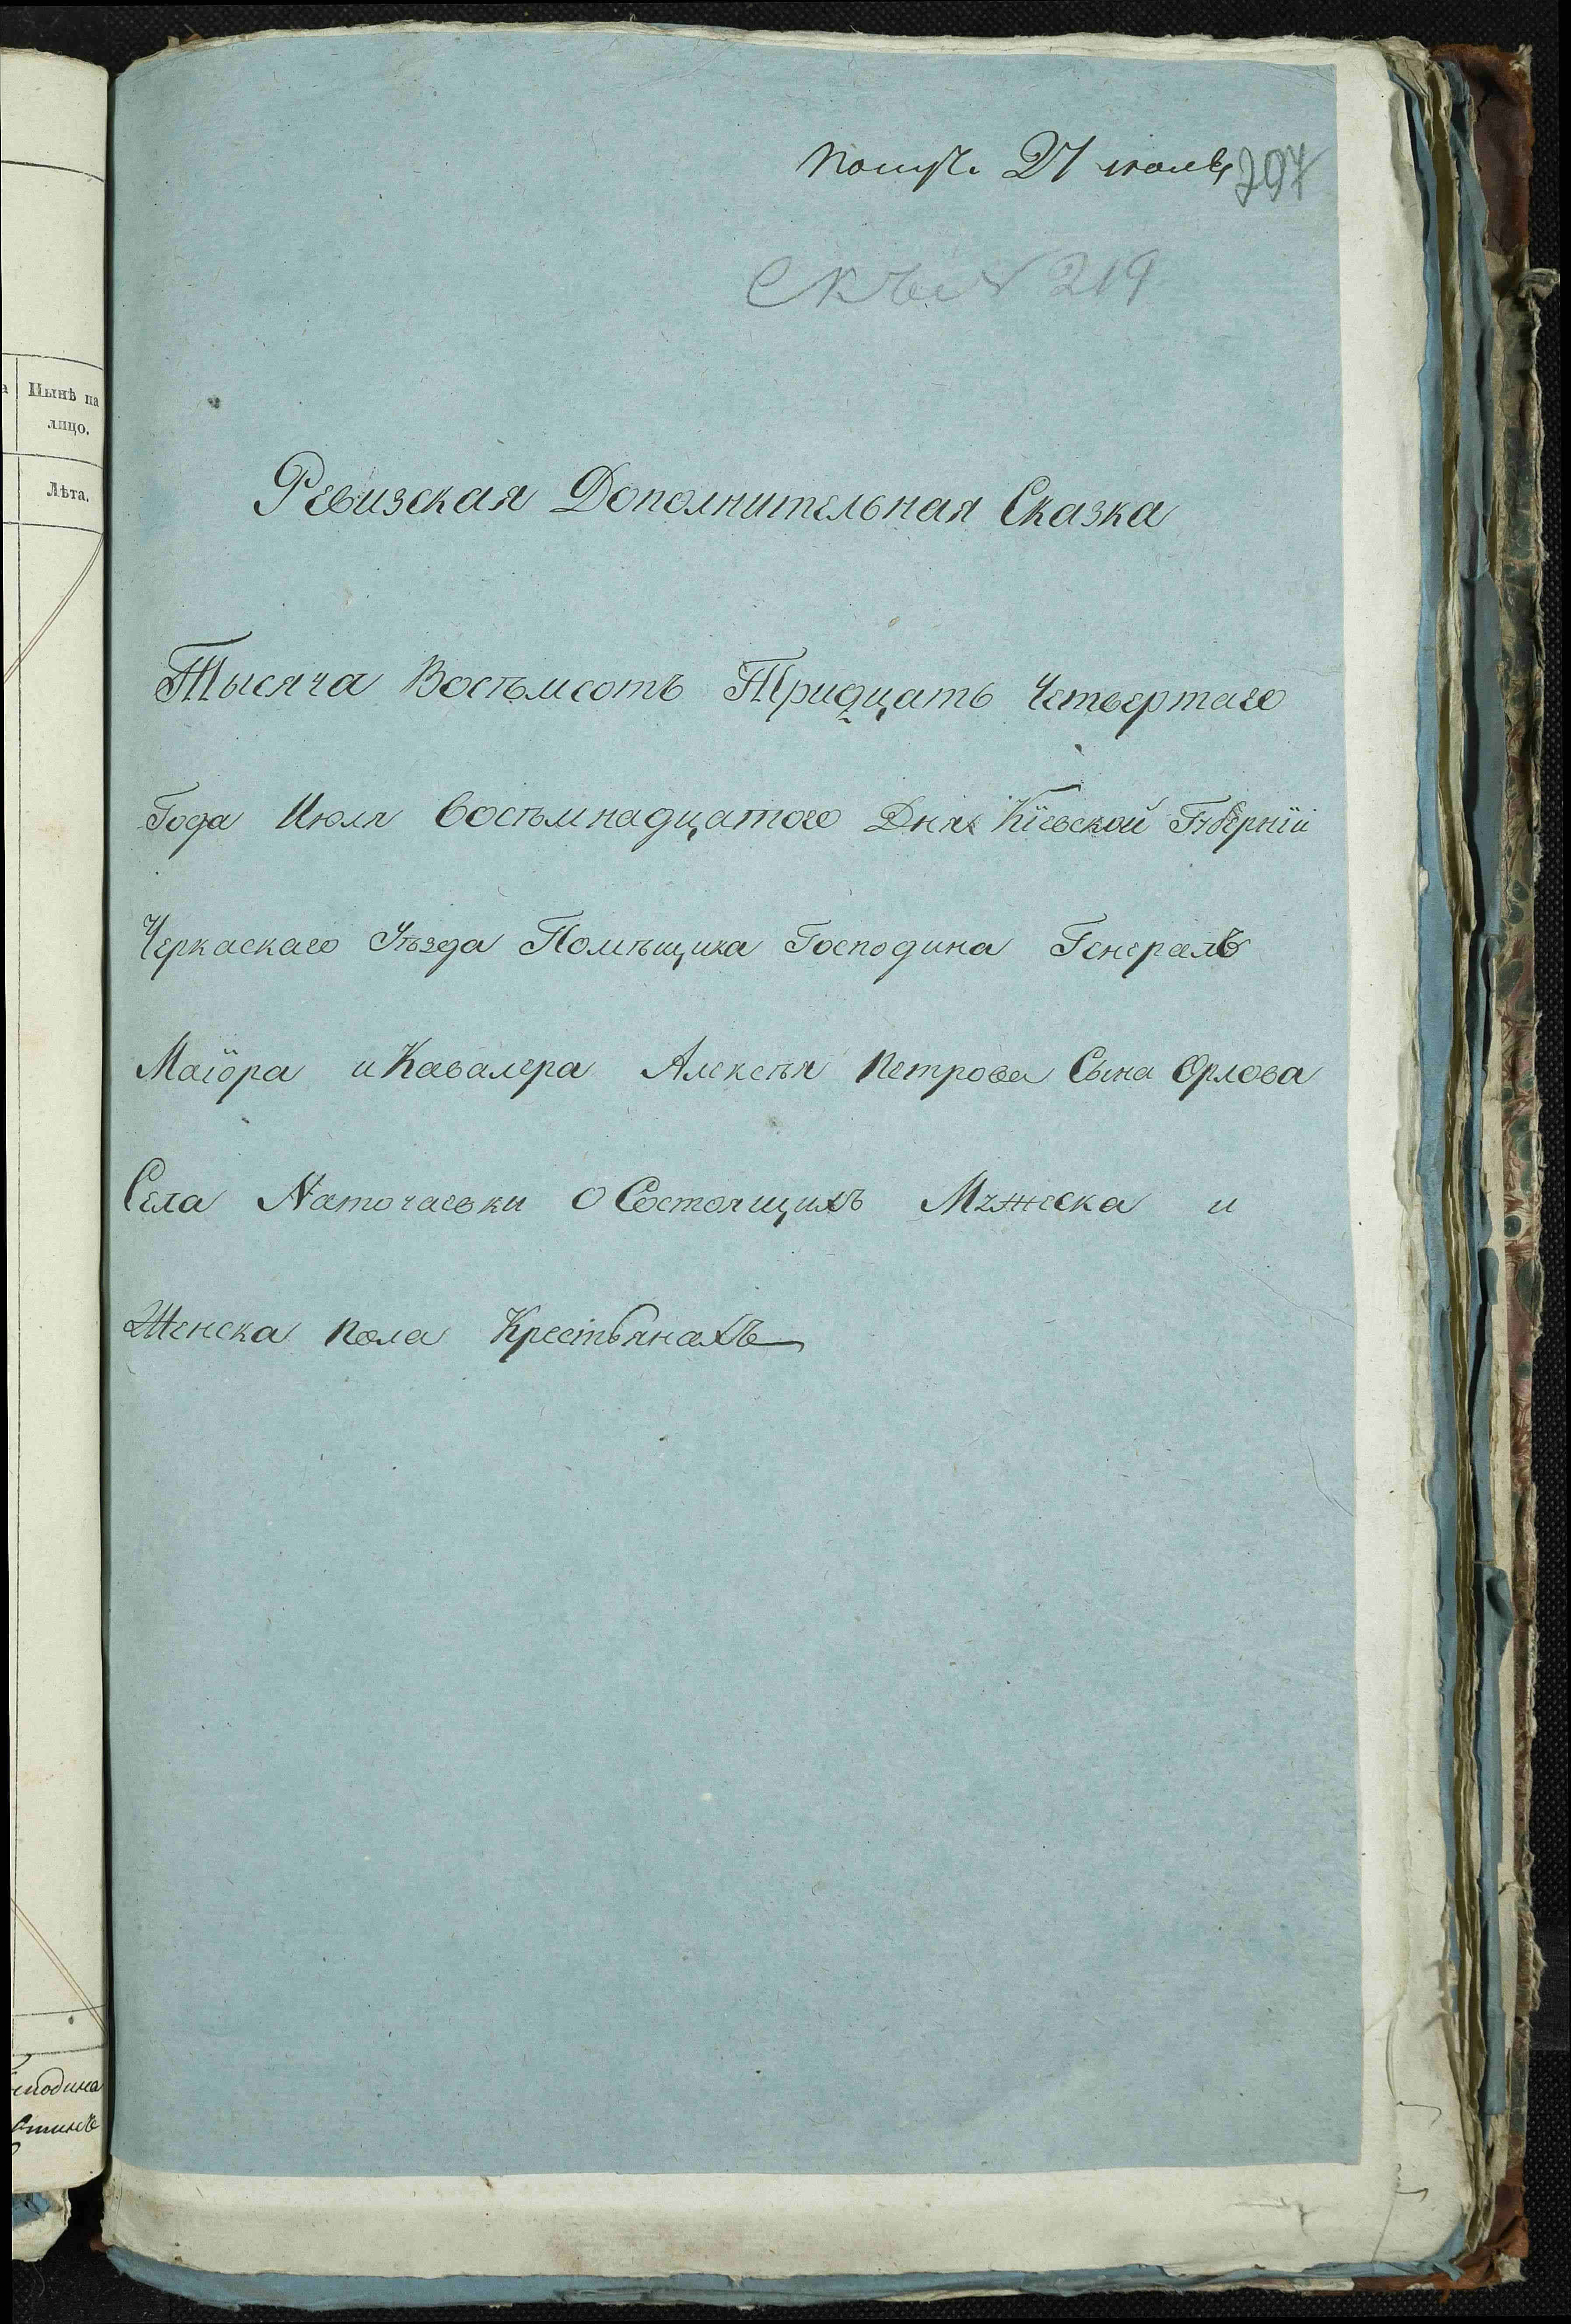 Получ. 27 июля 297
Скъ № 219
Нынѣ на
лицо.
Лѣта.
Ревизская Дополнительная Сказка
Тысяча Восѣмсотъ Тридцать Четвертаго
Года Июля восѣмнадцатого Дня Кіевской Губернїи
Черкаскаго Уѣзда Помѣщика Господина Генералъ
Маіора и Кавалера Алексѣя Петрова Сына Орлова
Села Наточаевки о Состоящихъ Мужеска и
Женска пола Крестьянахъ